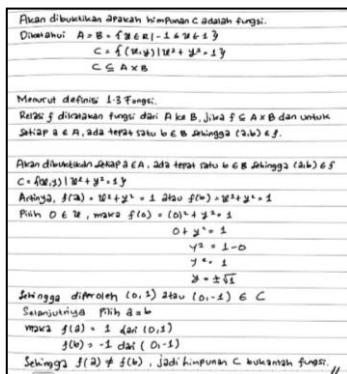 Akan dibuktikan apakah himpunan C adalah fungsi.
Diketahui A = B = {x ∈ R | -1 ≤ x ≤ 1}
C = {(x,y) | x² + y² = 1}
C ⊆ A × B
Menurut definisi 1.3 Fungsi.
Relasi f dikatakan fungsi dari A ke B, jika f ⊆ A × B dan untuk
setiap a ∈ A, ada tepat satu b ∈ B sehingga (a,b) ∈ f.
Akan dibuktikan setiap a ∈ A, ada tepat satu b ∈ B sehingga (a,b) ∈ f
C = {(x,y) | x² + y² = 1}
Artinya, f(a) = x² + y² = 1 atau f(b) = x² + y² = 1
Pilih 0 ∈ x, maka f(0) = (0)² + y² = 1
0 + y² = 1
y² = 1 - 0
y² = 1
y = ±√1
Sehingga diperoleh (0, 1) atau (0, -1) ∈ C
Selanjutnya pilih a = b
maka f(a) = 1 dari (0, 1)
f(b) = -1 dari (0, -1)
Sehingga f(a) ≠ f(b), jadi himpunan C bukanlah fungsi. //